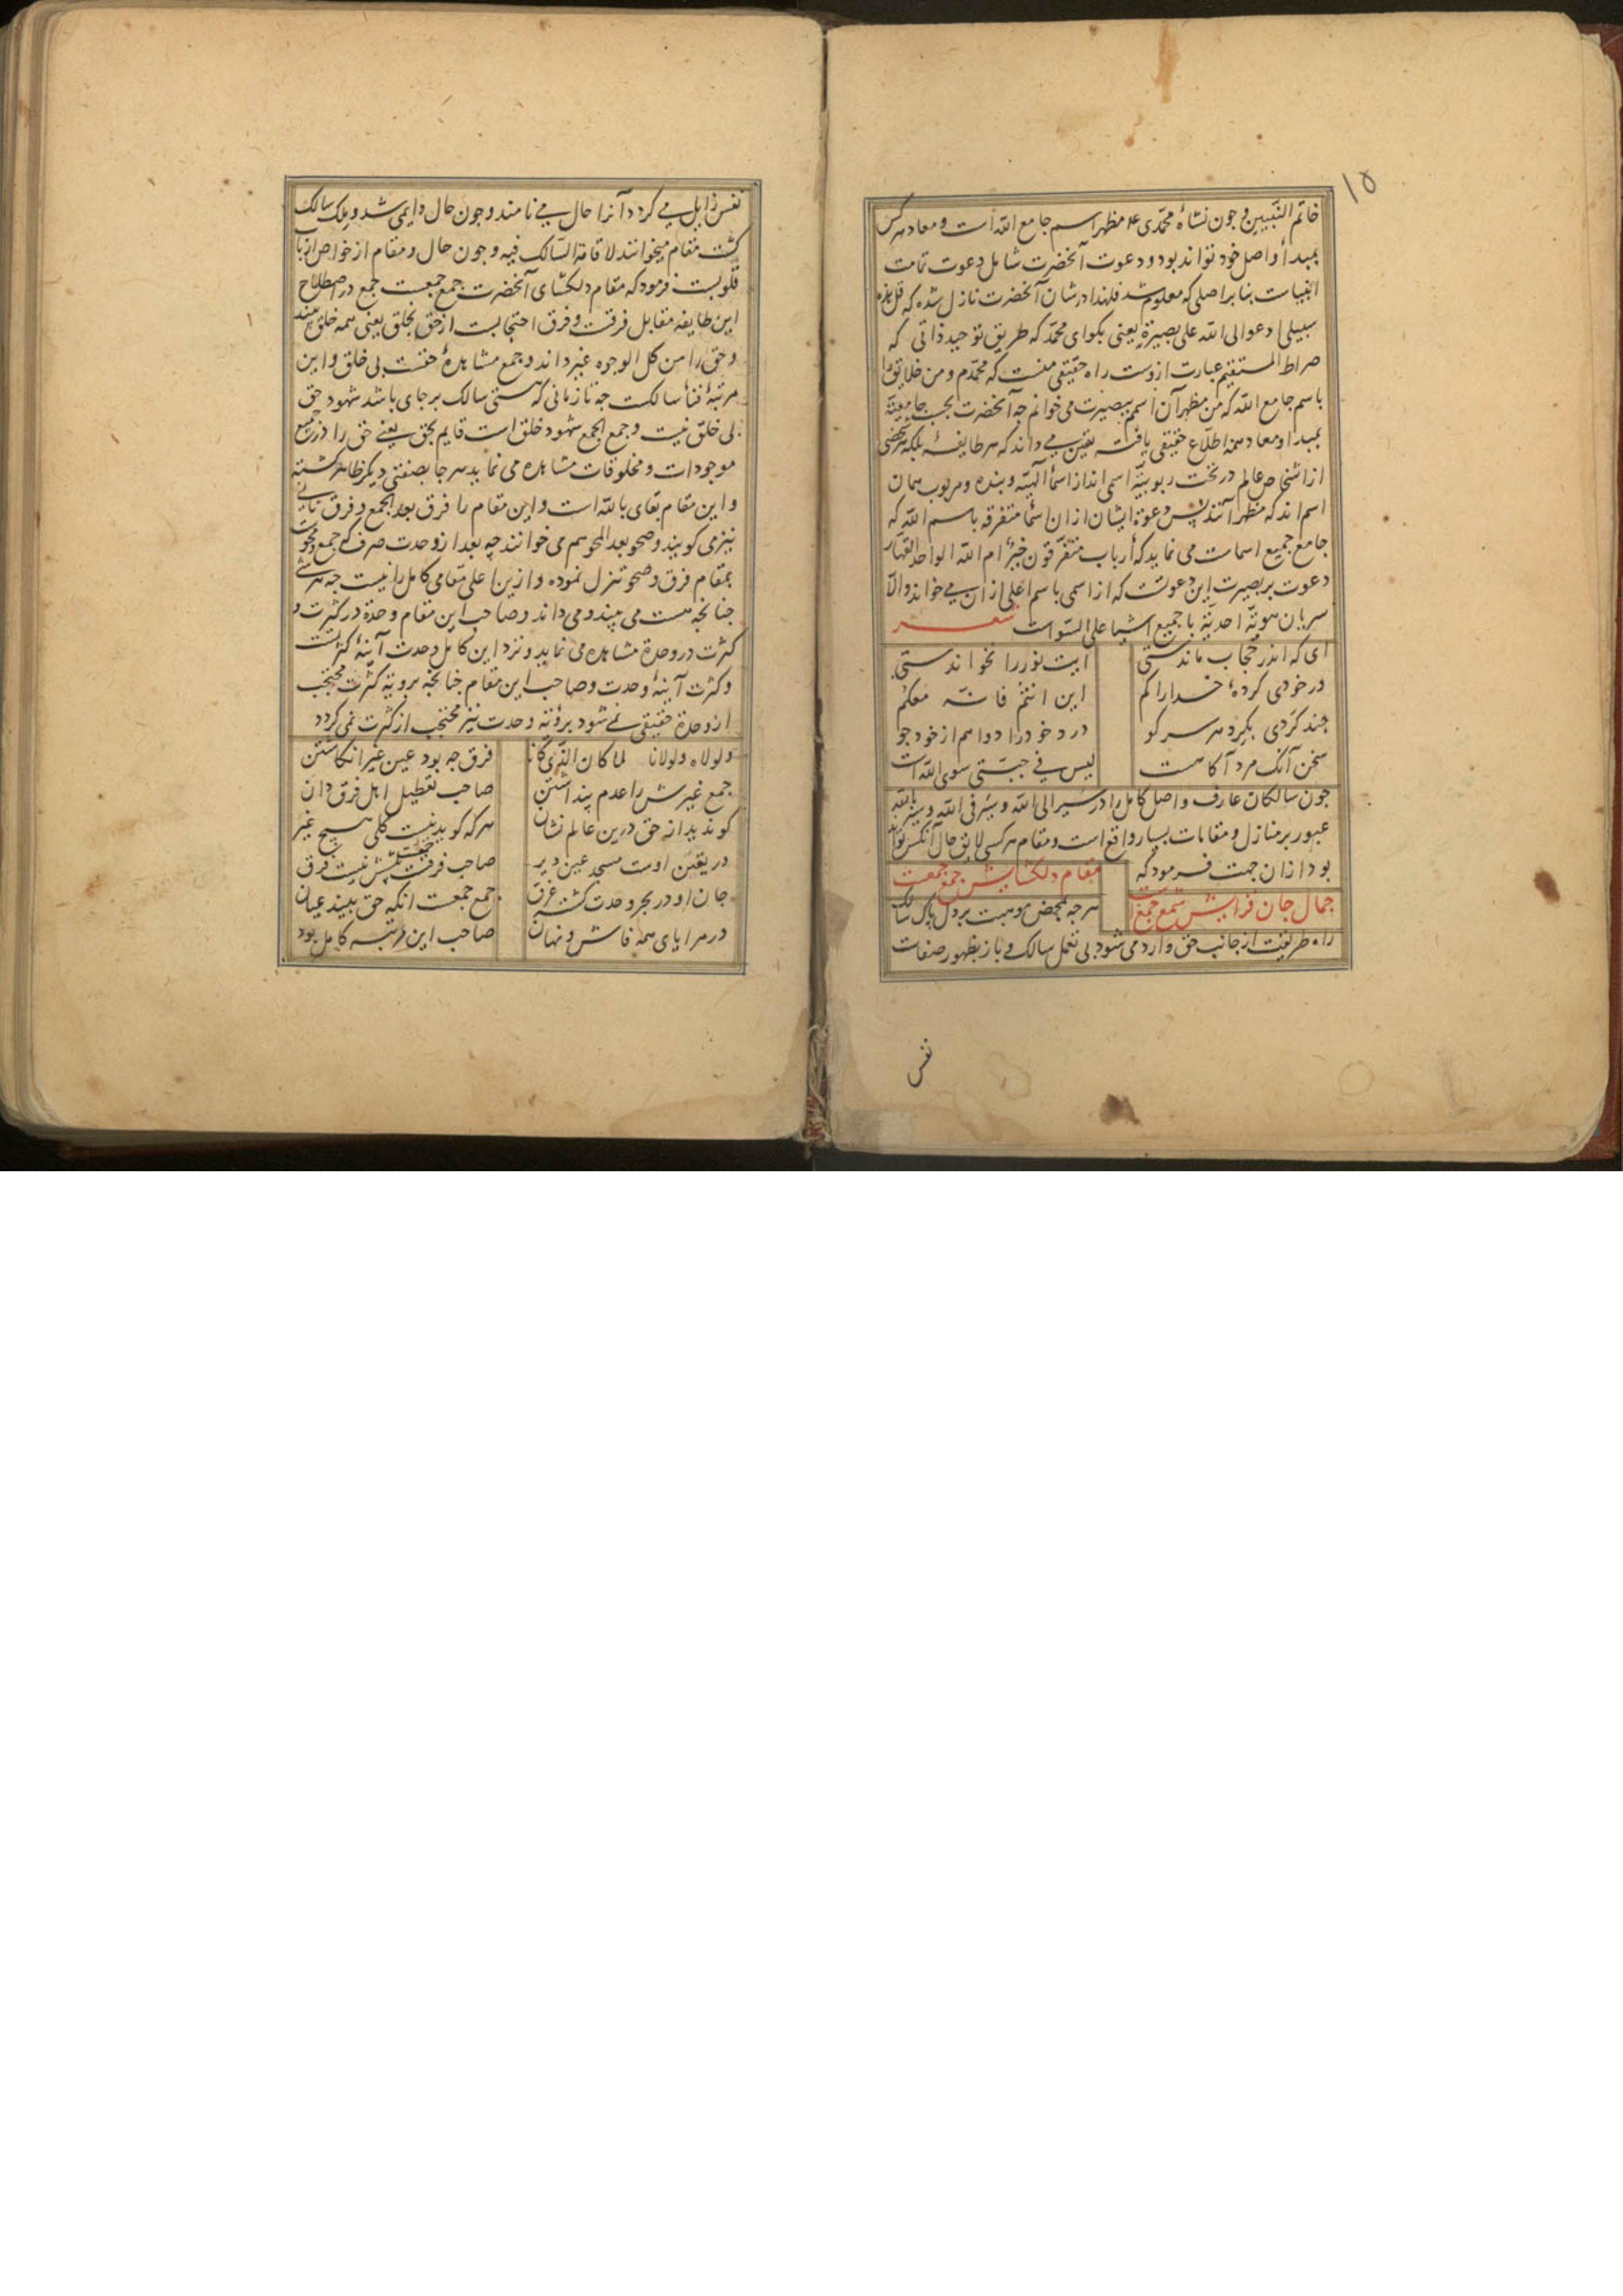 ۱۵
خاتم النبیین و چون نشاهٔ محمدی ع م مظهر اسم جامع الله است و معاد هر کس
بمبدأ و اصل خود تواند بود و دعوت آنحضرت شامل دعوت تمامت
انبیاست بنا بر اصلی که معلوم شد فلهذا در شان آنحضرت نازل شده که قل هذه
سبیلی ادعوا الی الله علی بصیرة یعنی بکو ای محمد که طریق توحید ذاتی که
صراط المستقیم عبارت ازوست راه حقیقی منست که محمدم و من خلایق را
باسم جامع الله که من مظهر آن اسمم ببصیرت می خوانم چه آنحضرت بحسب جامعیة
بمبدا و معاد همه اطلاع حقیقی یافته یقین می داند که هر طایفهٔ بلکه هر شخصی
از اشخاص عالم در تحت ربوبیة اسمی اند از اسماء الهیه و بنده و مربوب همان
اسم اند که مظهر آنند پس دعوة ایشان ازان اسماء متفرقه باسم الله که
جامع جمیع اسماست می نماید که أرباب متفرقون خیر ام الله الواحد القهار
دعوت بر بصیرت این دعوتست که از اسمی باسم اعلی ازان می خواند و الا
سریان هویة احدیة با جمیع اشیا علی السواست شعر
ای که اندر حجاب ماندستی ایت نور را نخواندستی
در خودی کردهٔ خدا را کم این انتم فانه معکم
چند کردی بکرد هر سر کو درد خود را دوا هم از خود جو
سخن آنک مرد آکاهست لیس فی جبتی سوی الله است
چون سالکان عارف و اصل کامل را در سیر الی الله و سیر فی الله و سیر بالله
عبور بر منازل و مقامات بسیار واقع است و مقام هر کسی لایق حال آنکس تواند
بود ازان جهت فرمود که مقام دلکشایش جمع جمعست
جمال جان فزایش شمع جمع است هر چه بمحض موهبت بر دل پاک سالک
راه طریقت از جانب حق وارد می شود بی تعمل سالک و باز بظهور صفات
نفس
نفس زایل می کردد آنرا حال می نامند و چون حال دایمی شد و ملک سالک
کشت مقام میخوانند لاقامة السالک فیه و چون حال و مقام از خواص ارباب
قلوبست فرمود که مقام دلکشای آنحضرت جمع جمعست جمع در اصطلاح
این طایفه مقابل فرقست و فرق احتجابست از حق بخلق یعنی همه خلق بیند
و حق را من کل الوجوه غیر داند و جمع مشاهدهٔ حقست بی خلق و این
مرتبهٔ فناء سالکست چه تا زمانی که هستی سالک بر جای باشد شهود حق
بی خلق نیست و جمع الجمع شهود خلق است قایم بحق یعنی حق را در جمیع
موجودات و مخلوقات مشاهده می نماید هر جا بصفتی دیکر ظاهر کشته
و این مقام بقای بالله است و این مقام را فرق بعد الجمع و فرق ثانی
نیز می کویند و صحو بعد المحو هم می خوانند چه بعد از وحدت صرف که جمع و محوست
بمقام فرق و صحو تنزل نموده و ازین اعلی مقامی کامل را نیست چه هر شی
چنانچه هست می بیند و می داند و صاحب این مقام وحدة در کثرت و
کثرت در وحدة مشاهده می نماید و نزد این کامل وحدت آینهٔ کثرتست
و کثرت آینهٔ وحدت و صاحب این مقام چنانچه برویة کثرت محتجب
از وحدة حقیقی نمی شود برؤیة وحدت نیز محتجب از کثرت نمی کردد
ولولاه ولولانا لما کان الذی کانا فرق چه بود عین غیر انکاشتن
جمع غیرش را عدم پنداشتن صاحب تعطیل اهل فرق دان
کو ندید از حق درین عالم نشان هر که کوید نیست کلی هیچ غیر
در یقین اوست مسجد عین دیر صاحب جمعست پیشش نیست فرق
جان او در بحر وحدت کشته غرق جمع جمعست آنکه حق بیند عیان
در مرایای همه فاش و نهان صاحب این مرتبه کامل بود